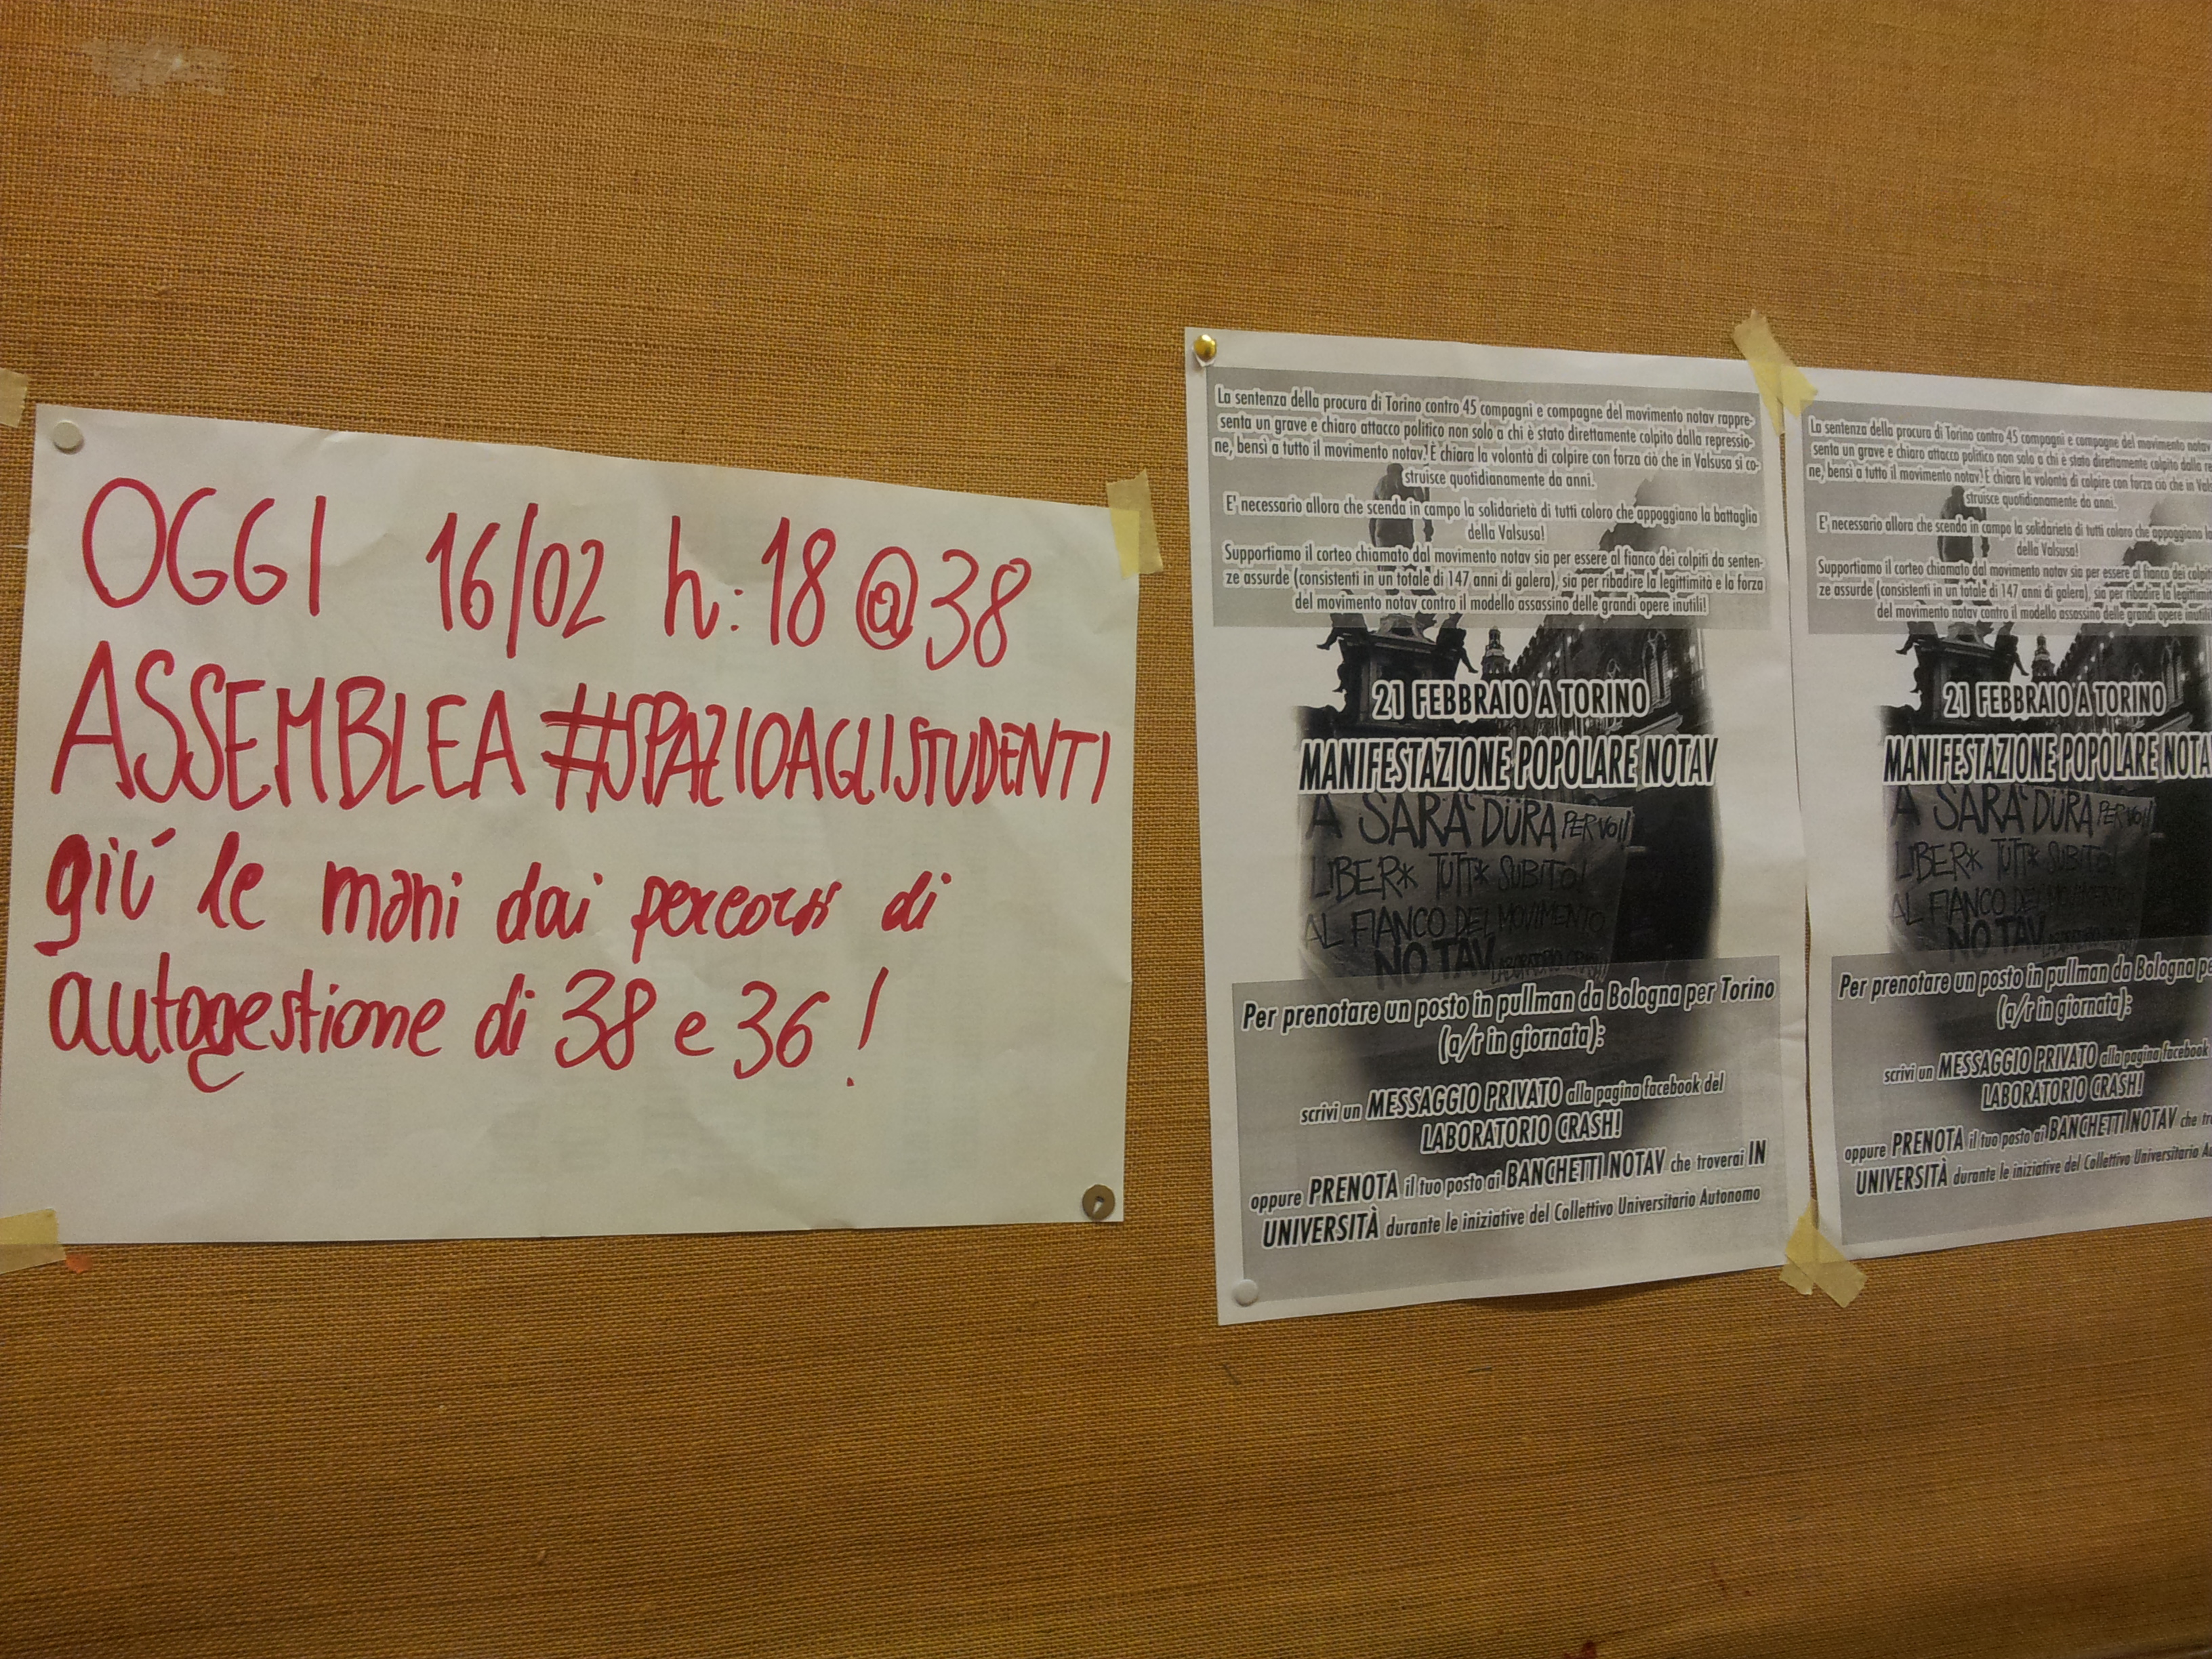 OGGI 16/02 h: 18 @ 38
ASSEMBLEA #SPAZIOAGLISTUDENTI
giú le mani dai percorsi di
autogestione di 38 e 36!
La sentenza della procura di Torino contro 45 compagni e compagne del movimento notav rappre-
senta un grave e chiaro attacco politico non solo a chi è stato direttamente colpito dalla repressio-
ne, bensì a tutto il movimento notav! È chiara la volontà di colpire con forza ciò che in Valsusa si co-
struisce quotidianamente da anni.
E' necessario allora che scenda in campo la solidarietà di tutti coloro che appoggiano la battaglia
della Valsusa!
Supportiamo il corteo chiamato dal movimento notav sia per essere al fianco dei colpiti da senten-
ze assurde (consistenti in un totale di 147 anni di galera), sia per ribadire la legittimità e la forza
del movimento notav contro il modello assassino delle grandi opere inutili!
21 FEBBRAIO A TORINO
MANIFESTAZIONE POPOLARE NOTAV
A SARÀ DÜRA PER VOI!
LIBER* TUTT* SUBITO!
AL FIANCO DEL MOVIMENTO
NO TAV LABORATORIO CRASH!
Per prenotare un posto in pullman da Bologna per Torino
(a/r in giornata):
scrivi un MESSAGGIO PRIVATO alla pagina facebook del
LABORATORIO CRASH!
oppure PRENOTA il tuo posto ai BANCHETTI NOTAV che troverai IN
UNIVERSITÀ durante le iniziative del Collettivo Universitario Autonomo
La sentenza della procura di Torino contro 45 compagni e compagne del movimento notav
senta un grave e chiaro attacco politico non solo a chi è stato direttamente colpito dalla re
ne, bensì a tutto il movimento notav! È chiara la volontà di colpire con forza ciò che in Vals
struisce quotidianamente da anni.
E' necessario allora che scenda in campo la solidarietà di tutti coloro che appoggiano la
della Valsusa!
Supportiamo il corteo chiamato dal movimento notav sia per essere al fianco dei colpiti
ze assurde (consistenti in un totale di 147 anni di galera), sia per ribadire la legittimi
del movimento notav contro il modello assassino delle grandi opere inutili
21 FEBBRAIO A TORINO
MANIFESTAZIONE POPOLARE NOTA
A SARÀ DÜRA PER VOI!
LIBER* TUTT* SUBITO!
AL FIANCO DEL MOVIMENTO
NO TAV
Per prenotare un posto in pullman da Bologna pe
(a/r in giornata):
scrivi un MESSAGGIO PRIVATO alla pagina facebook
LABORATORIO CRASH!
oppure PRENOTA il tuo posto ai BANCHETTI NOTAV che tro
UNIVERSITÀ durante le iniziative del Collettivo Universitario Au